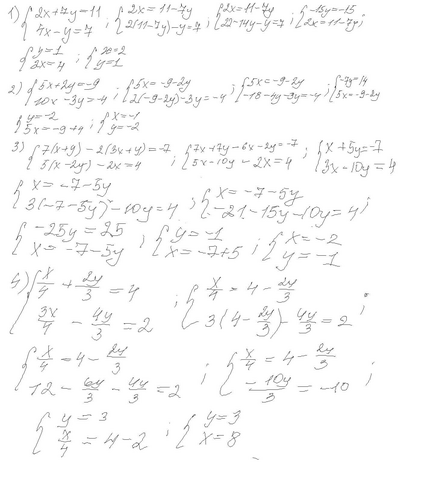 1) { 2x+7y=11 4x-y=7 ; { 2x=11-7y 2(11-7y)-y=7 ; { 2x=11-7y 22-14y-y=7 ; { -15y=-15 2x=11-7y ;
{ y=1 2x=4 ; { x=2 y=1
2) { 5x+2y=-9 10x-3y=-4 ; { 5x=-9-2y 2(-9-2y)-3y=-4 ; { 5x=-9-2y -18-4y-3y=-4 ; { -7y=14 5x=-9-2y
{ y=-2 5x=-9+4 ; { x=-1 y=-2
3) { 7(x+y)-2(3x+y)=-7 5(x-2y)-2x=4 ; { 7x+7y-6x-2y=-7 5x-10y-2x=4 ; { x+5y=-7 3x-10y=4
{ x=-7-5y 3(-7-5y)-10y=4 ; { x=-7-5y -21-15y-10y=4 ;
{ -25y=25 x=-7-5y ; { y=-1 x=-7+5 ; { x=-2 y=-1
4) { x/4 + 2y/3 = 4 3x/4 - 4y/3 = 2 ; { x/4 = 4 - 2y/3 3(4 - 2y/3) - 4y/3 = 2 ;
{ x/4 = 4 - 2y/3 12 - 6y/3 - 4y/3 = 2 ; { x/4 = 4 - 2y/3 -10y/3 = -10 ;
{ y=3 x/4 = 4-2 ; { y=3 x=8